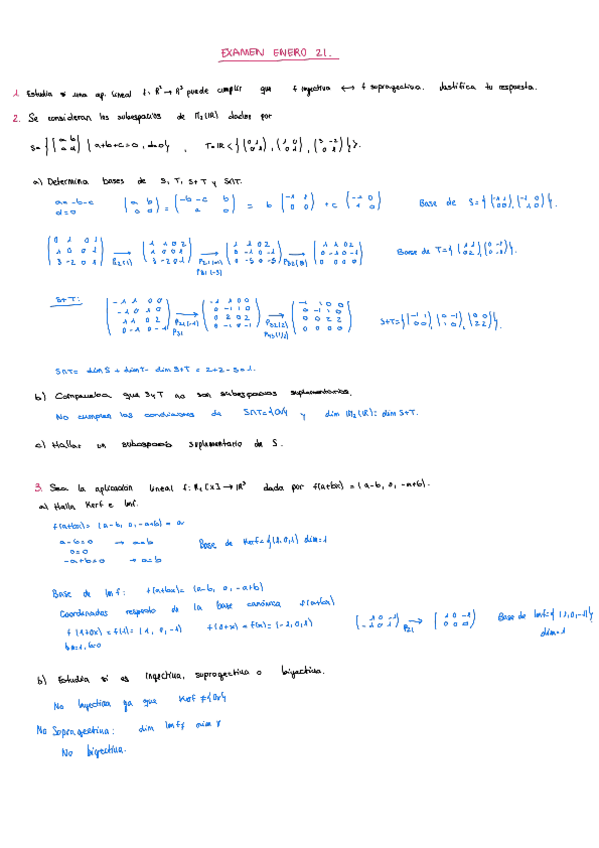 EXAMEN ENERO 21.
1. Estudia si una ap. lineal f: R³ → R³ puede cumplir que f inyectiva ↔ f suprayectiva. Justifica tu respuesta.
2. Se consideran los subespacios de M₂(R) dados por
S= { (a b / c d) | a+b+c=0, d=0 } , T=R< { (0 1 / 0 1), (1 0 / 0 1), (3 -2 / 0 1) } >.
a) Determina bases de S, T, S+T y S∩T.
a=-b-c
d=0
(a b / c 0) = (-b-c b / c 0) = b (-1 1 / 0 0) + c (-1 0 / 1 0) Base de S= { (-1 1 / 0 0), (-1 0 / 1 0) }.
(0 1 0 1 / 1 0 0 1 / 3 -2 0 1) → (1 1 0 2 / 1 0 0 1 / 3 -2 0 1) → (1 1 0 2 / 0 -1 0 -1 / 0 -5 0 -5) → (1 1 0 2 / 0 -1 0 -1 / 0 0 0 0) Base de T= { (1 1 / 0 2), (0 -1 / 0 -1) }.
S+T:
(-1 1 0 0 / -1 0 1 0 / 1 1 0 2 / 0 -1 0 -1) → (-1 1 0 0 / 0 -1 1 0 / 0 2 0 2 / 0 -1 0 -1) → (-1 1 0 0 / 0 -1 1 0 / 0 0 2 2 / 0 0 0 0) S+T= { (-1 1 / 0 0), (0 -1 / 1 0), (0 0 / 2 2) }.
S∩T= dim S + dim T - dim S+T = 2+2-3=1.
b) Comprueba que S y T no son subespacios suplementarios.
No cumplen las condiciones de S∩T={0} y dim M₂(R)= dim S+T.
c) Hallar un subespacio suplementario de S.
3. Sea la aplicación lineal f: R₁[x] → R³ dada por f(a+bx) = (a-b, 0, -a+b).
a) Halla Kerf e Imf.
f(a+bx)= (a-b, 0, -a+b) =
a-b=0 → a=b
0=0
-a+b=0 → a=b
Base de Kerf= {(1,0,1)} dim=1
Base de Imf: f(a+bx)= (a-b, 0, -a+b)
Coordenadas respecto de la base canónica f(a+bx)
f(1+0x) = f(1)= (1, 0, -1) f(0+x) = f(x)= (-1,0,1)
(1 0 -1 / -1 0 1) → (1 0 -1 / 0 0 0) Base de Imf= {(1,0,-1)}
dim=1
b) Estudia si es inyectiva, suprayectiva o biyectiva.
No inyectiva ya que Kerf ≠
No Suprayectiva: dim Imf ≠
No biyectiva.